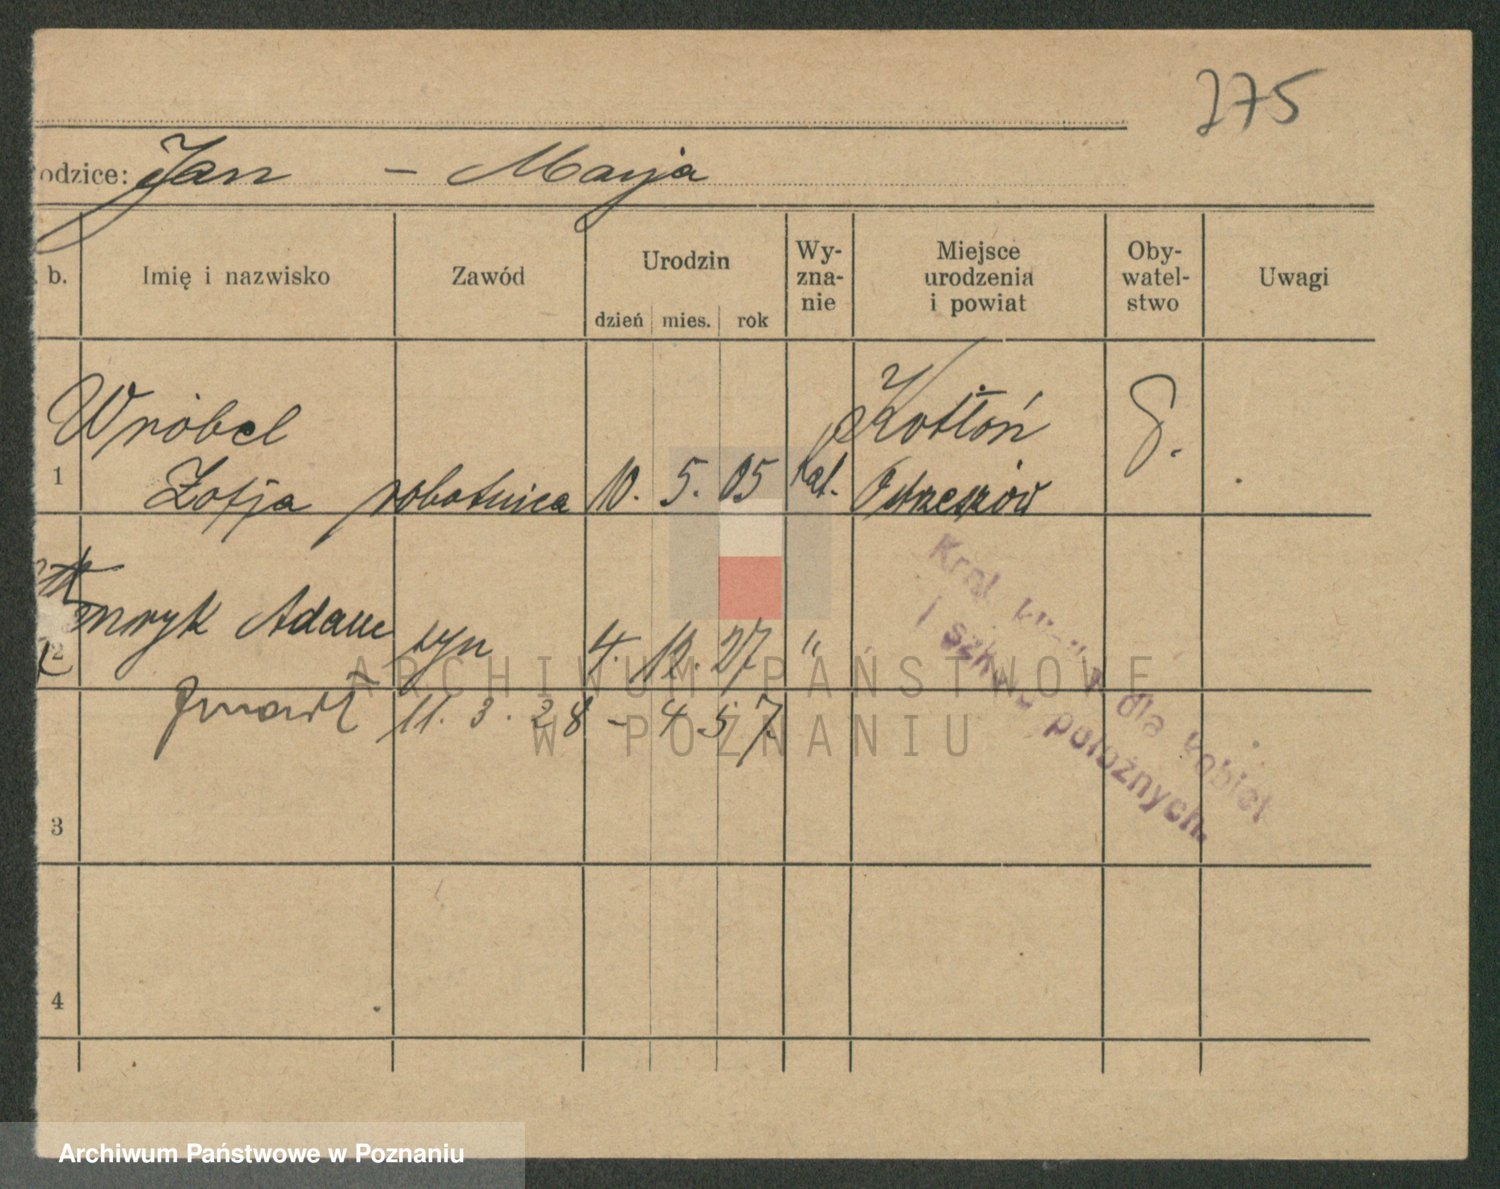 275
odzice: Jan - Marja
b. Imię i nazwisko Zawód Urodzin dzień mies. rok Wy-zna-nie Miejsce urodzenia i powiat Oby-watel-stwo Uwagi
Wróbel Kotłoń
1 Zofja robotnica 10. 5. 05 kat. Ostrzeszów
Henryk Adam
2 syn 4. 12. 27 "
zmarł 11. 3. 28 - 457
3
4
Kraj. dla kobiet
i szkoła położnych.
ARCHIWUM PAŃSTWOWE
W POZNANIU
Archiwum Państwowe w Poznaniu